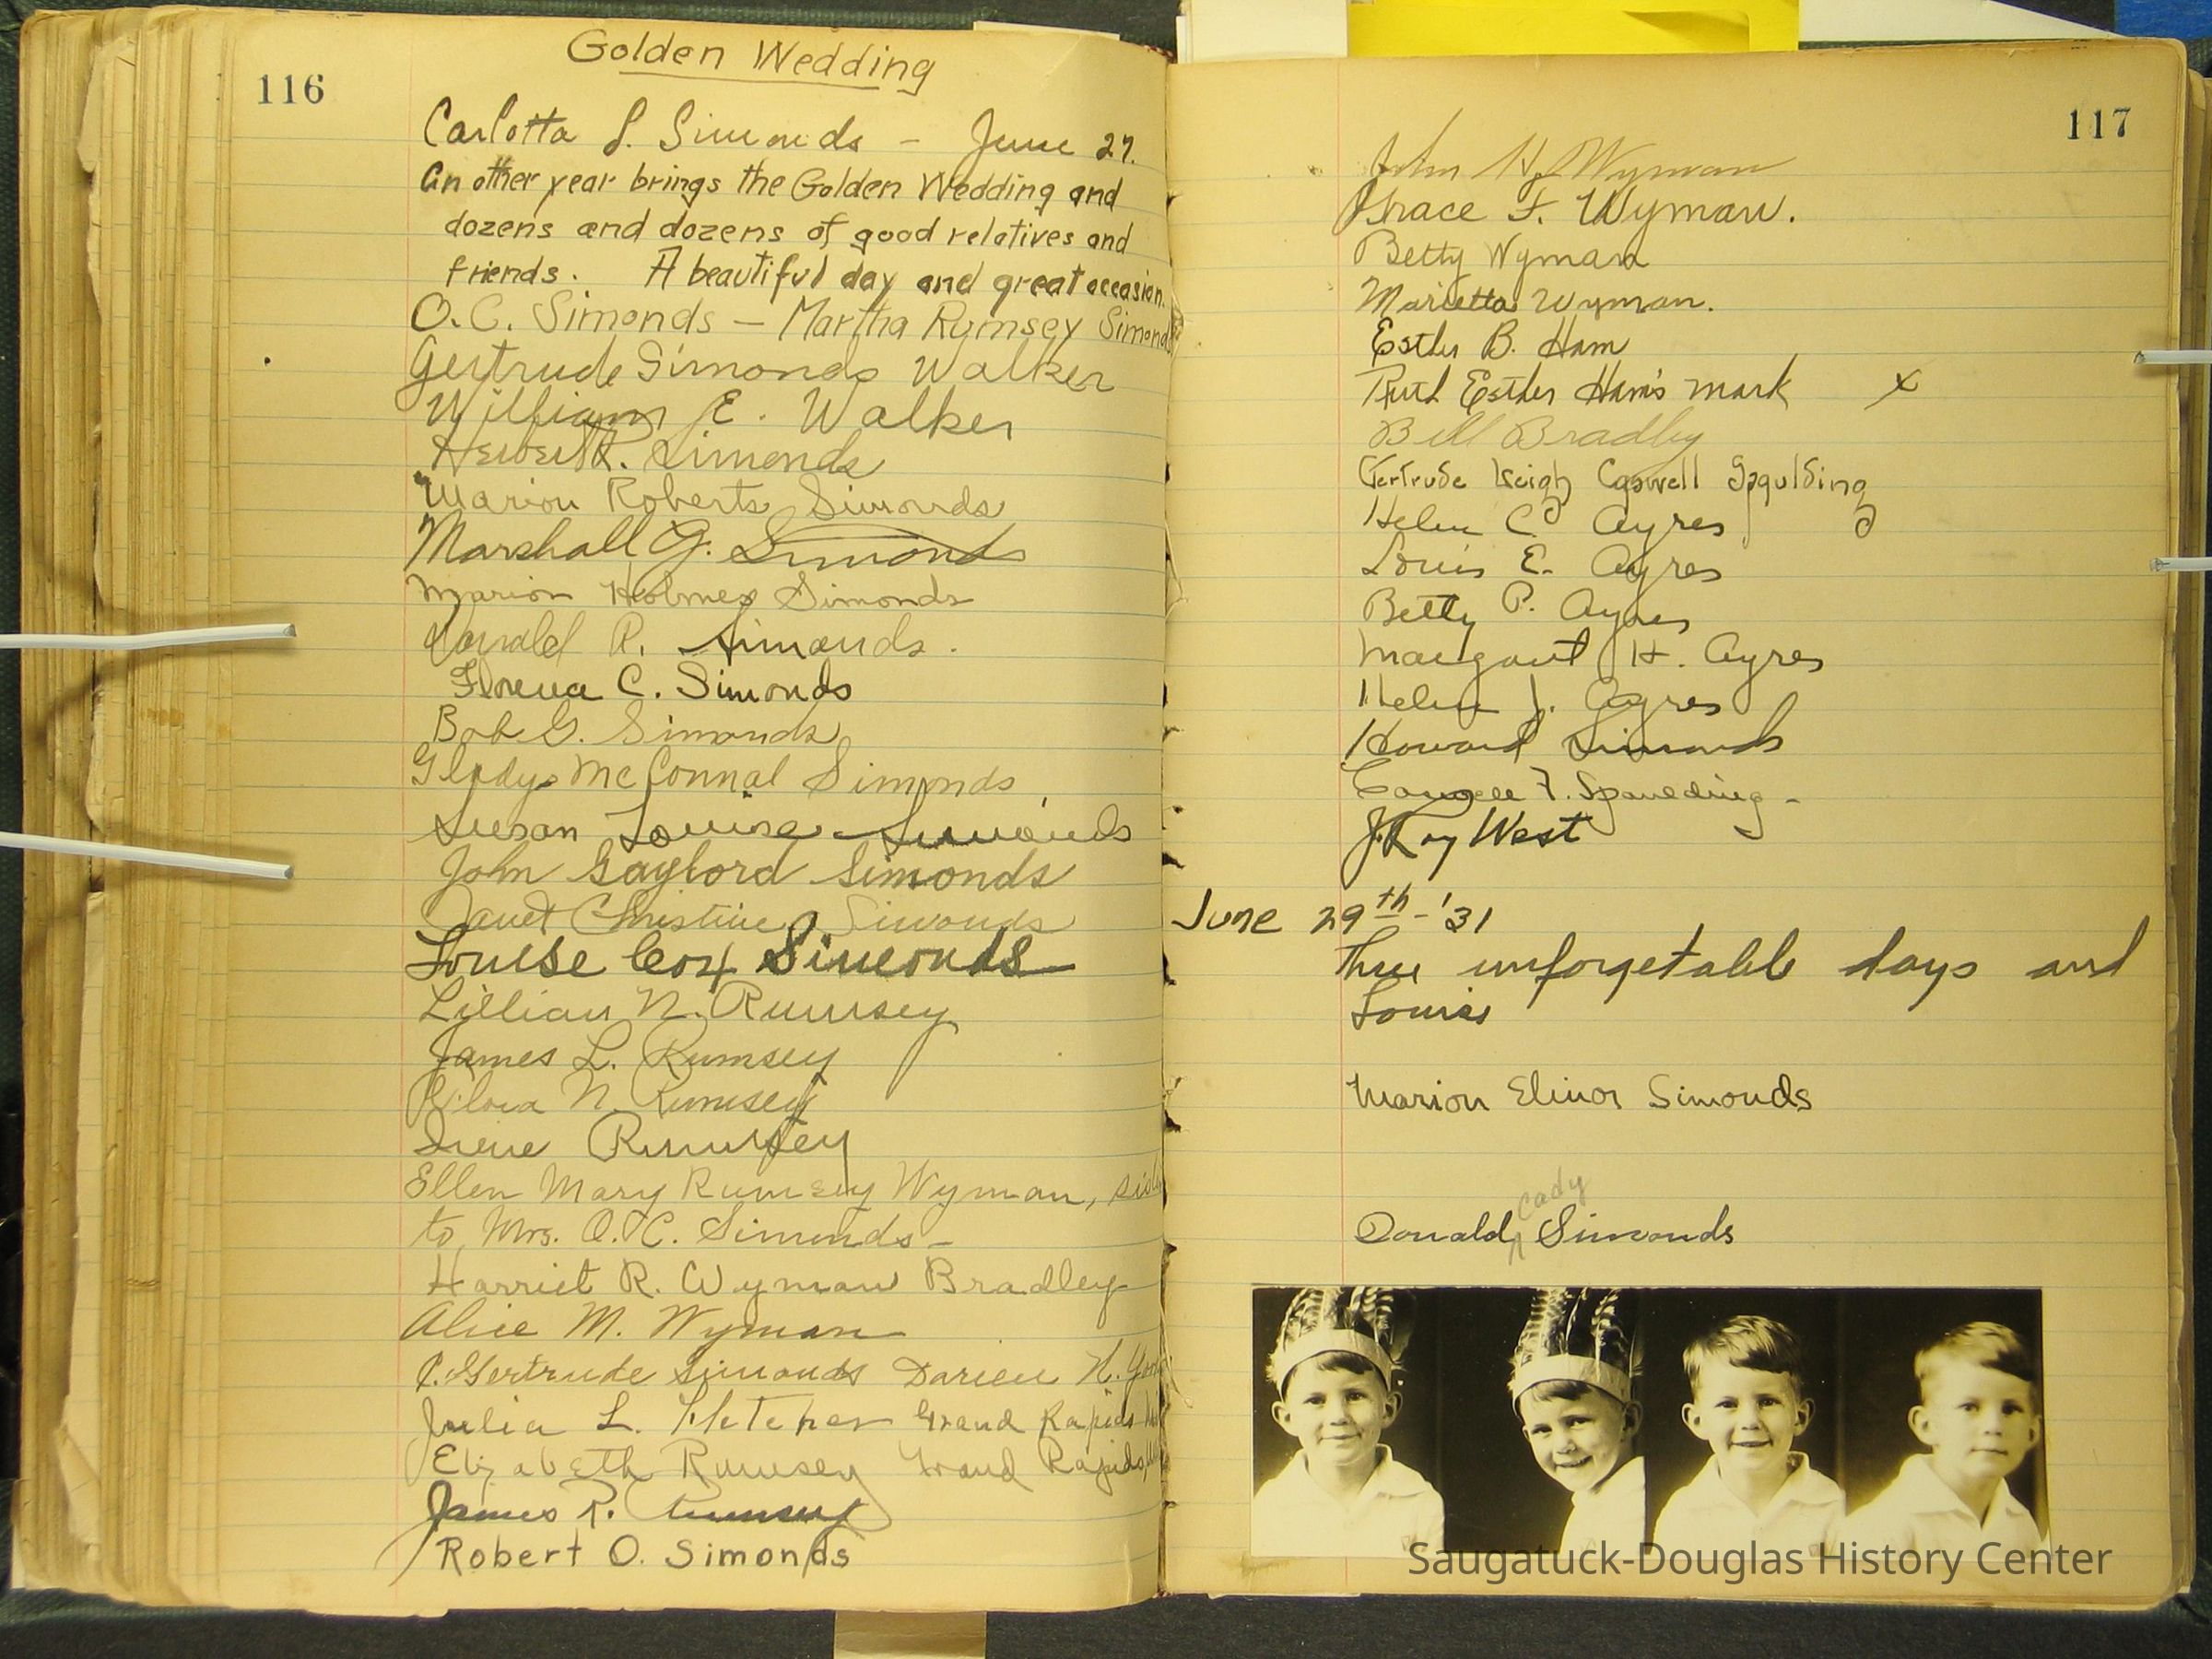 Golden Wedding
116
Carlotta S. Simonds - June 27.
Another year brings the Golden Wedding and
dozens and dozens of good relatives and
friends. A beautiful day and great occasion.
O.C. Simonds - Martha Rumsey Simonds
Gertrude Simonds Walker
William E. Walker
Herbert R. Simonds
Marion Roberts Simonds
Marshall G. Simonds
Marion Holmes Simonds
R. Simonds.
C. Simonds
Bob G. Simonds
Gladys McConnal Simonds
Susan Louise Simonds
John Gaylord Simonds
Janet Christine Simonds
Louise Cox Simonds
Lillian N. Rumsey
James L. Rumsey
N. Rumsey
Irene Rumsey
Ellen Mary Rumsey Wyman,
to Mrs. O.C. Simonds -
Harriet R. Wyman Bradley
Alice M. Wyman
Gertrude Simonds Darien N. York
Julia L. Fletcher Grand Rapids
Elizabeth Rumsey Grand Rapids
James R. Rumsey
Robert O. Simonds
117
John H. Wyman
Grace F. Wyman.
Betty Wyman
Marietta Wyman.
Esther B. Ham
Ruth Esther Ham's mark x
Bill Bradley
Gertrude Leigh Caswell Spaulding
Helen C. Ayres
Louis E. Ayres
Betty P. Ayres
Margaret H. Ayres
Helen J. Ayres
Howard Simonds
F. Spaulding -
J. Roy West
June 29th - '31
Three unforgetable days and
Louis
Marion Elinor Simonds
Cady
Donald ^ Simonds
Saugatuck-Douglas History Center